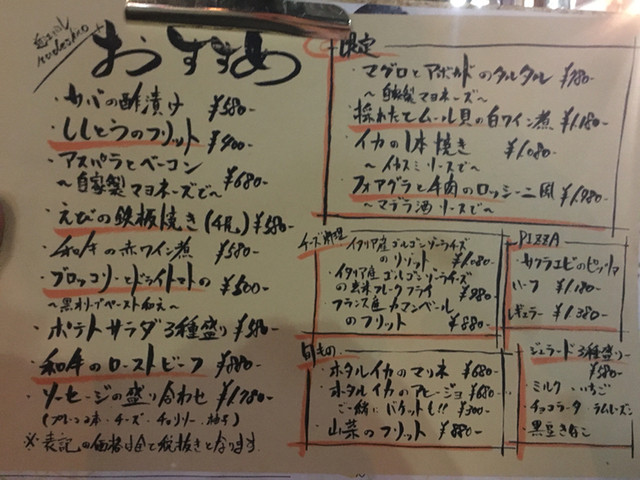 おすすめ
・サバの酢漬け ¥580-
・ししとうのフリット ¥400-
・アスパラとベーコン
～自家製マヨネーズで～ ¥680-
・えびの鉄板焼き(4尾) ¥580-
・和牛の赤ワイン煮 ¥580-
・ブロッコリーとドライトマトの ¥500-
～黒オリーブペースト和え～
・ポテトサラダ3種盛り ¥580-
・和牛のローストビーフ ¥880-
・ソーセージの盛り合わせ ¥1,780-
(プレーン2本・チーズ・チョリソー・柚子)
※表記の価格は全て税抜きとなります。
限定
・マグロとアボカドのタルタル ¥780-
～自家製マヨネーズ～
・採れたてムール貝の白ワイン煮 ¥1,180-
・イカの1本焼き ¥1,080-
～イカスミソースで～
・フォアグラと牛肉のロッシーニ風 ¥1,980-
～マデラ酒ソースで～
チーズ料理
・イタリア産ゴルゴンゾーラチーズ
のリゾット ¥1,080-
・イタリア産ゴルゴンゾーラチーズ
の玄米フレークフライ ¥980-
・フランス産カマンベール
のフリット ¥880-
PIZZA
・サクラエビのピッツァ
ハーフ ¥1,180-
レギュラー ¥1,380-
旬もの
・ホタルイカのマリネ ¥680-
・ホタルイカのアヒージョ ¥680-
ご一緒にバケットも!! ¥300-
・山菜のフリット ¥880-
・ジェラード3種盛り
¥580-
・ミルク ・いちご
・チョコラータ ・ラムレーズン
・黒豆きなこ